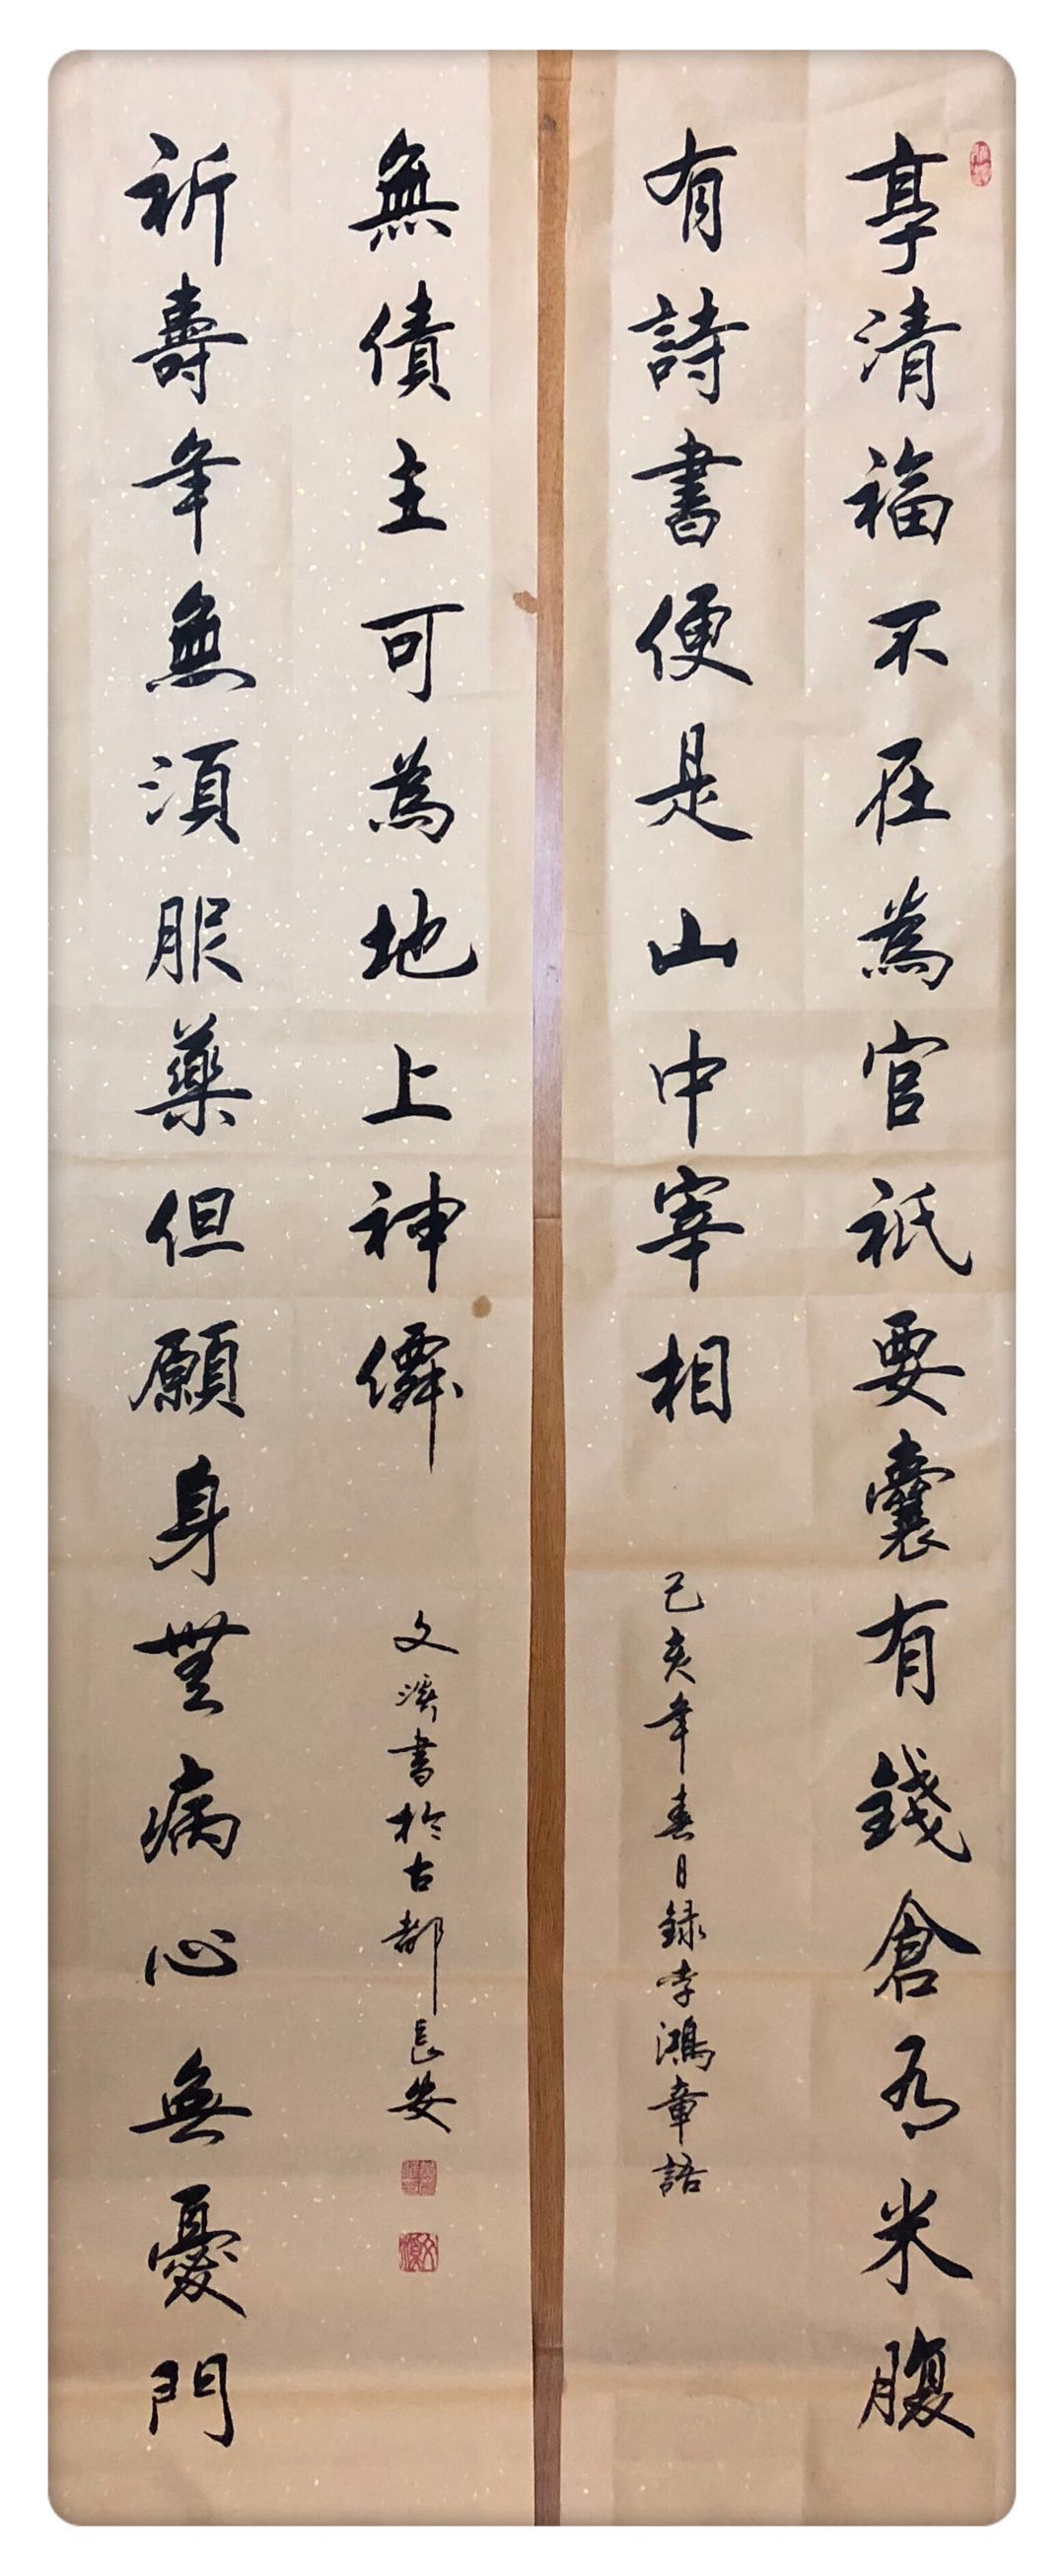 享清福不在為官祇要囊有錢倉有米腹
有詩書便是山中宰相
己亥年春日録李鴻章語
祈壽年無須服藥但願身無病心無憂門
無債主可為地上神僊
文書於古都長安